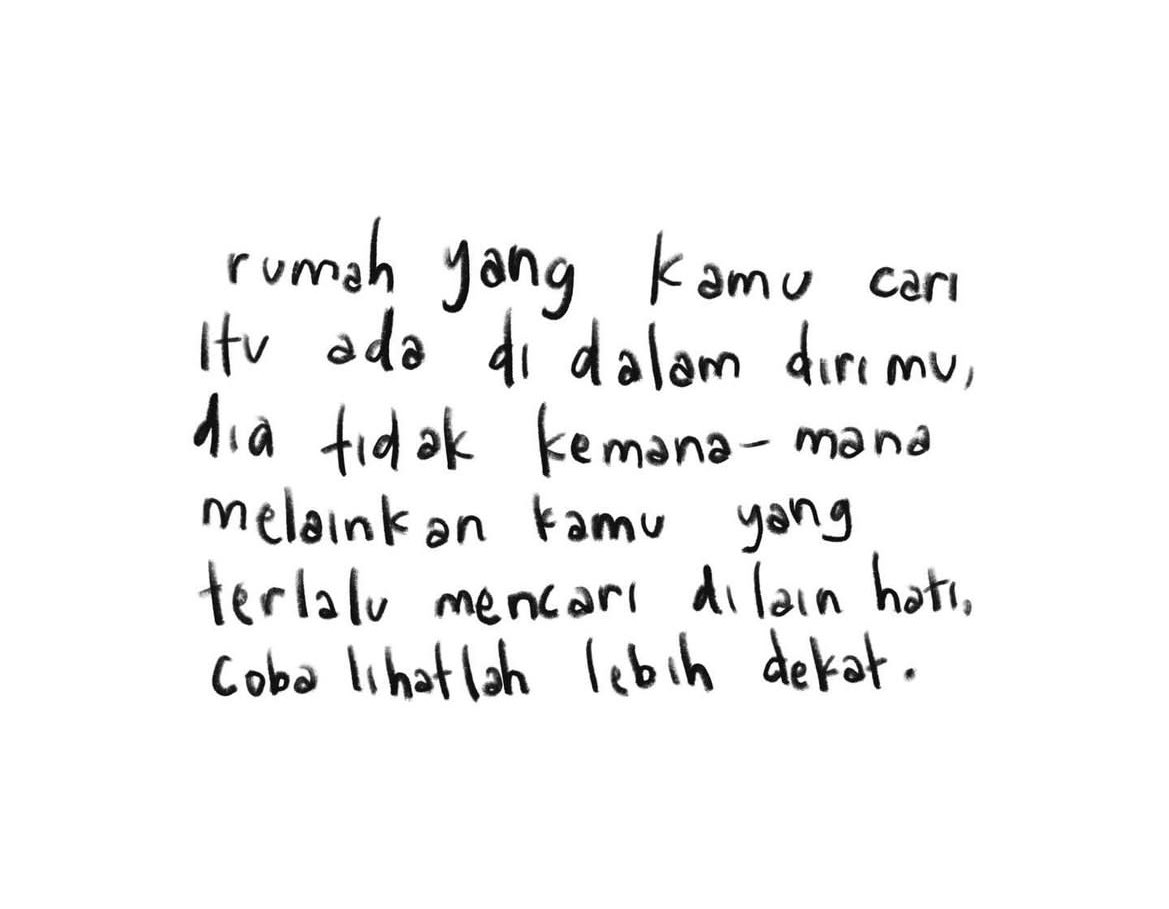 rumah yang kamu cari
itu ada di dalam dirimu,
dia tidak kemana-mana
melainkan kamu yang
terlalu mencari dilain hati,
coba lihatlah lebih dekat.